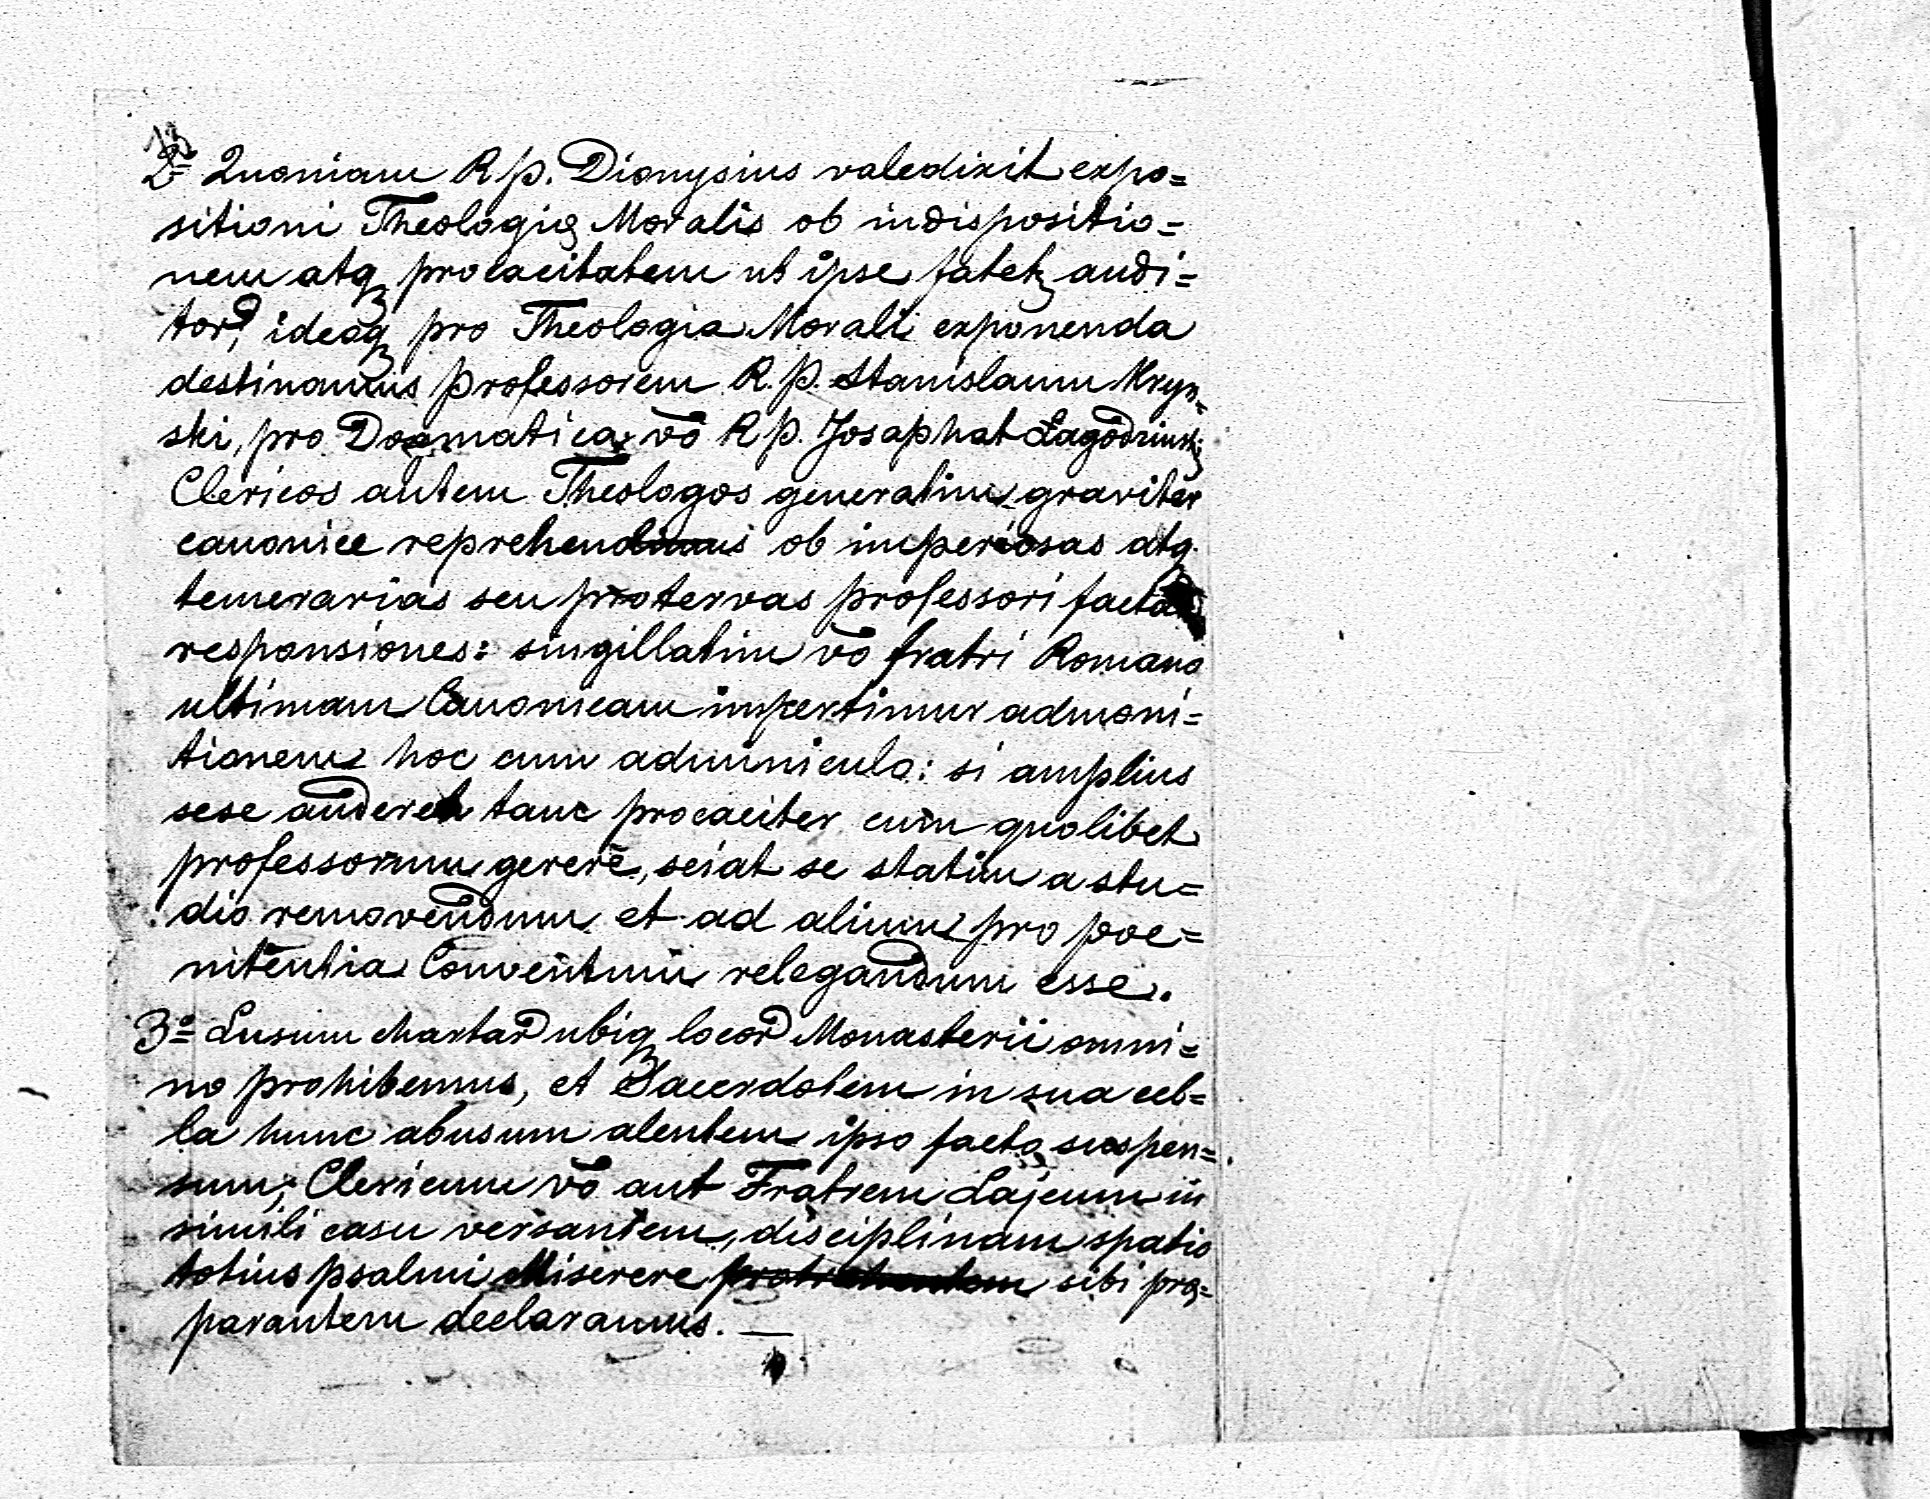 2º Quoniam R p. Dionysius valedixit expo=
sitioni Theologię Moralis ob indispositio=
nem atqꝫ procacitatem ut ipse fatetꝫ audi=
torꝝ, ideoqꝫ pro Theologia Morali exponenda
destinamus professorem R. p. Stanislaum Kryn=
ski, pro Dogmatica vō R p. Josaphat Łagodziński
Clericos autem Theologos generatim graviter
canonice reprehendimus ob imperiosas atq.
temerarias seu protervas professori factas
responsiones: singillatim vō fratri Romano
ultimam Canonicam impertimur admoni=
tionem hoc cum adminiculo: si amplius
sese auderet tanc procaciter cum quolibet
professorum gerere, sciat se statim a stu=
dio removendum et ad alium pro poe=
nitentia Conventum relegandum esse.
3º Lusum chartaꝝ ubiqꝫ locoꝝ Monasterii omni=
no prohibemus, et Sacerdotem in sua cel=
la hunc abusum alentem ipso facto suspen=
sum; Clericum vō aut Fratrem Lajcum in
simili casu versantem, disciplinam spatio
totius psalmi Miserere sibi prę=
parantem declaramus. —